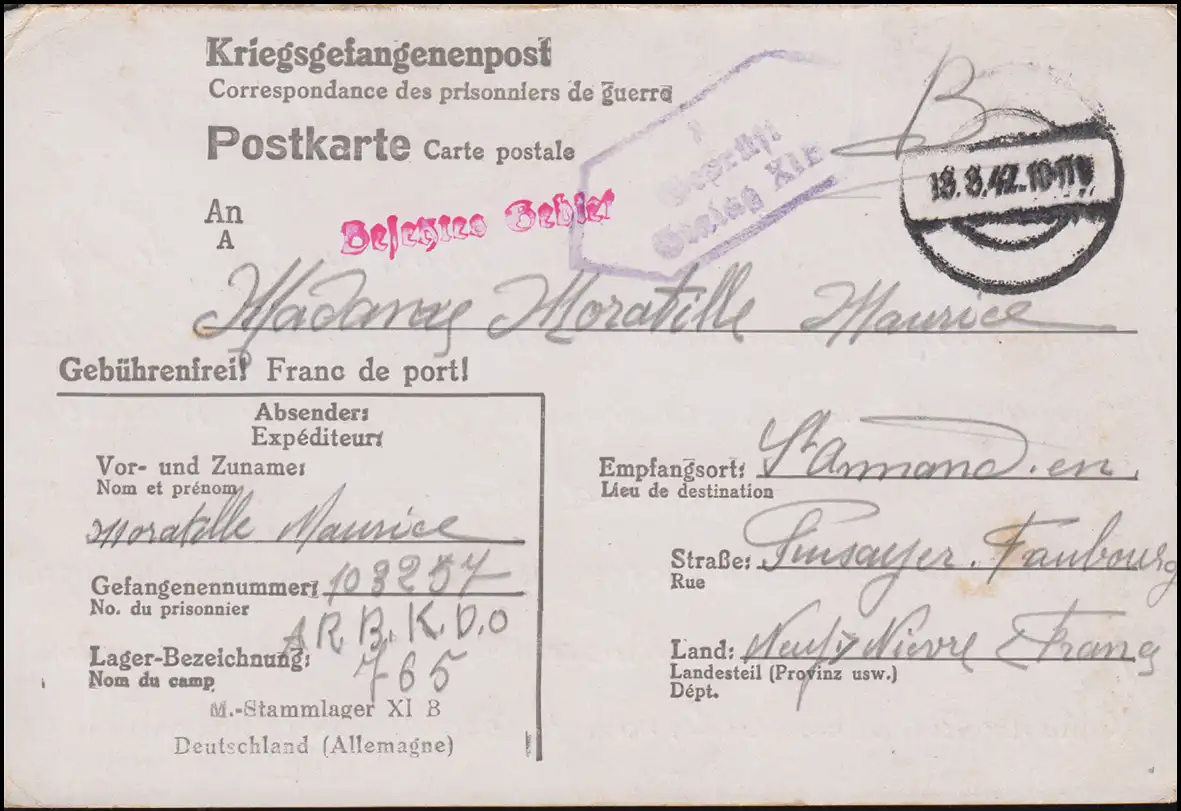 Kriegsgefangenenpost
Correspondance des prisonniers de guerre
Postkarte Carte postale
B
18. 8. 42.-10-11
Geprüft!
Stalag XI B
An
A
Besetztes Gebiet
Madame Moratille Maurice
Gebührenfrei! Franc de port!
Absender:
Expéditeur:
Vor- und Zuname:
Nom et prénom
Moratille Maurice
Gefangenennummer: 103257
No. du prisonnier
A R. B. K. D. O
Lager-Bezeichnung:
765
Nom du camp
M.-Stammlager XI B
Deutschland (Allemagne)
Empfangsort: St Amand. en.
Lieu de destination
Straße: Puisayer. Faubourg
Rue
Land: Neufy Nievre France
Landesteil (Provinz usw.)
Dépt.